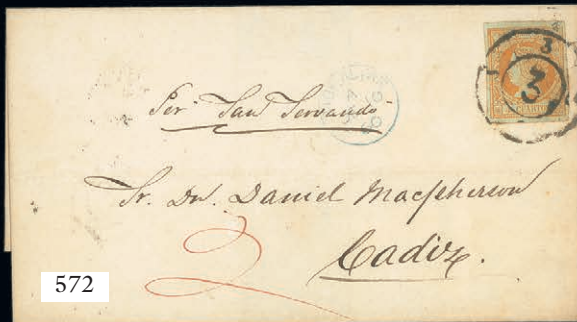 Per San Servando
3
3
Sr. Dn. Daniel Macpherson
Cadiz.
572